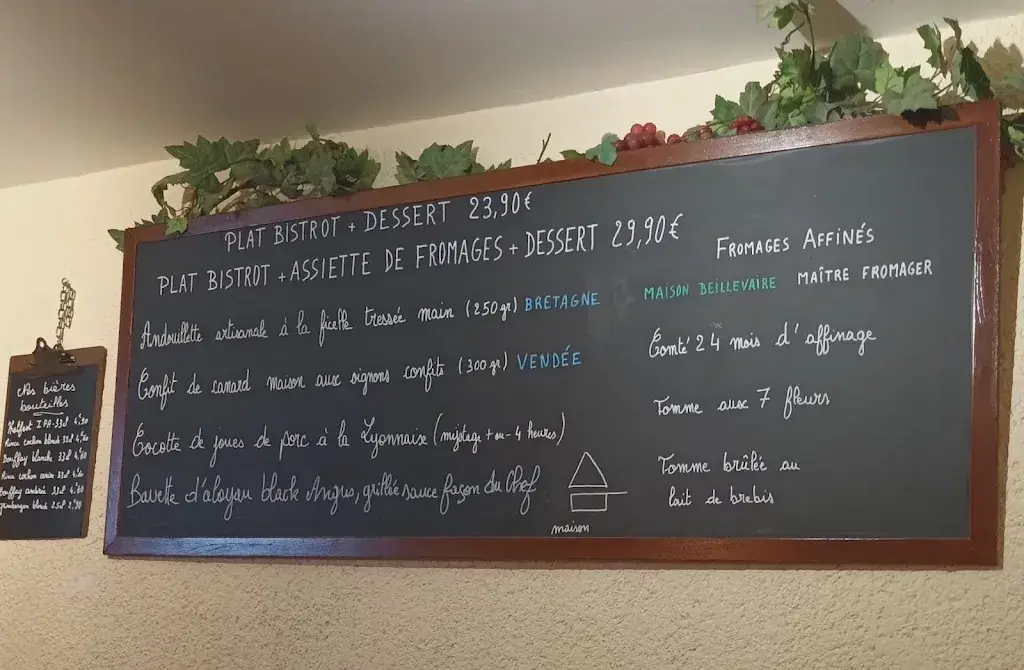 PLAT BISTROT + DESSERT 23,90€
PLAT BISTROT + ASSIETTE DE FROMAGES + DESSERT 29,90€
Andouillette artisanale à la ficelle tressée main (250gr) BRETAGNE
Confit de canard maison aux oignons confits (300gr) VENDÉE
Cocotte de joues de porc à la Lyonnaise (mijotage + ou - 4 heures)
Bavette d'aloyau black Angus, grillée sauce façon du Chef
maison
FROMAGES AFFINÉS
MAISON BEILLEVAIRE MAÎTRE FROMAGER
Comté 24 mois d'affinage
Tomme aux 7 fleurs
Tomme brûlée au
lait de brebis
Nos bières
bouteilles
IPA 33cl
cochon blonde 33cl
Bouffay blanche 33cl
cochon cerise 33cl
Bouffay ambrée 33cl
blonde 25cl